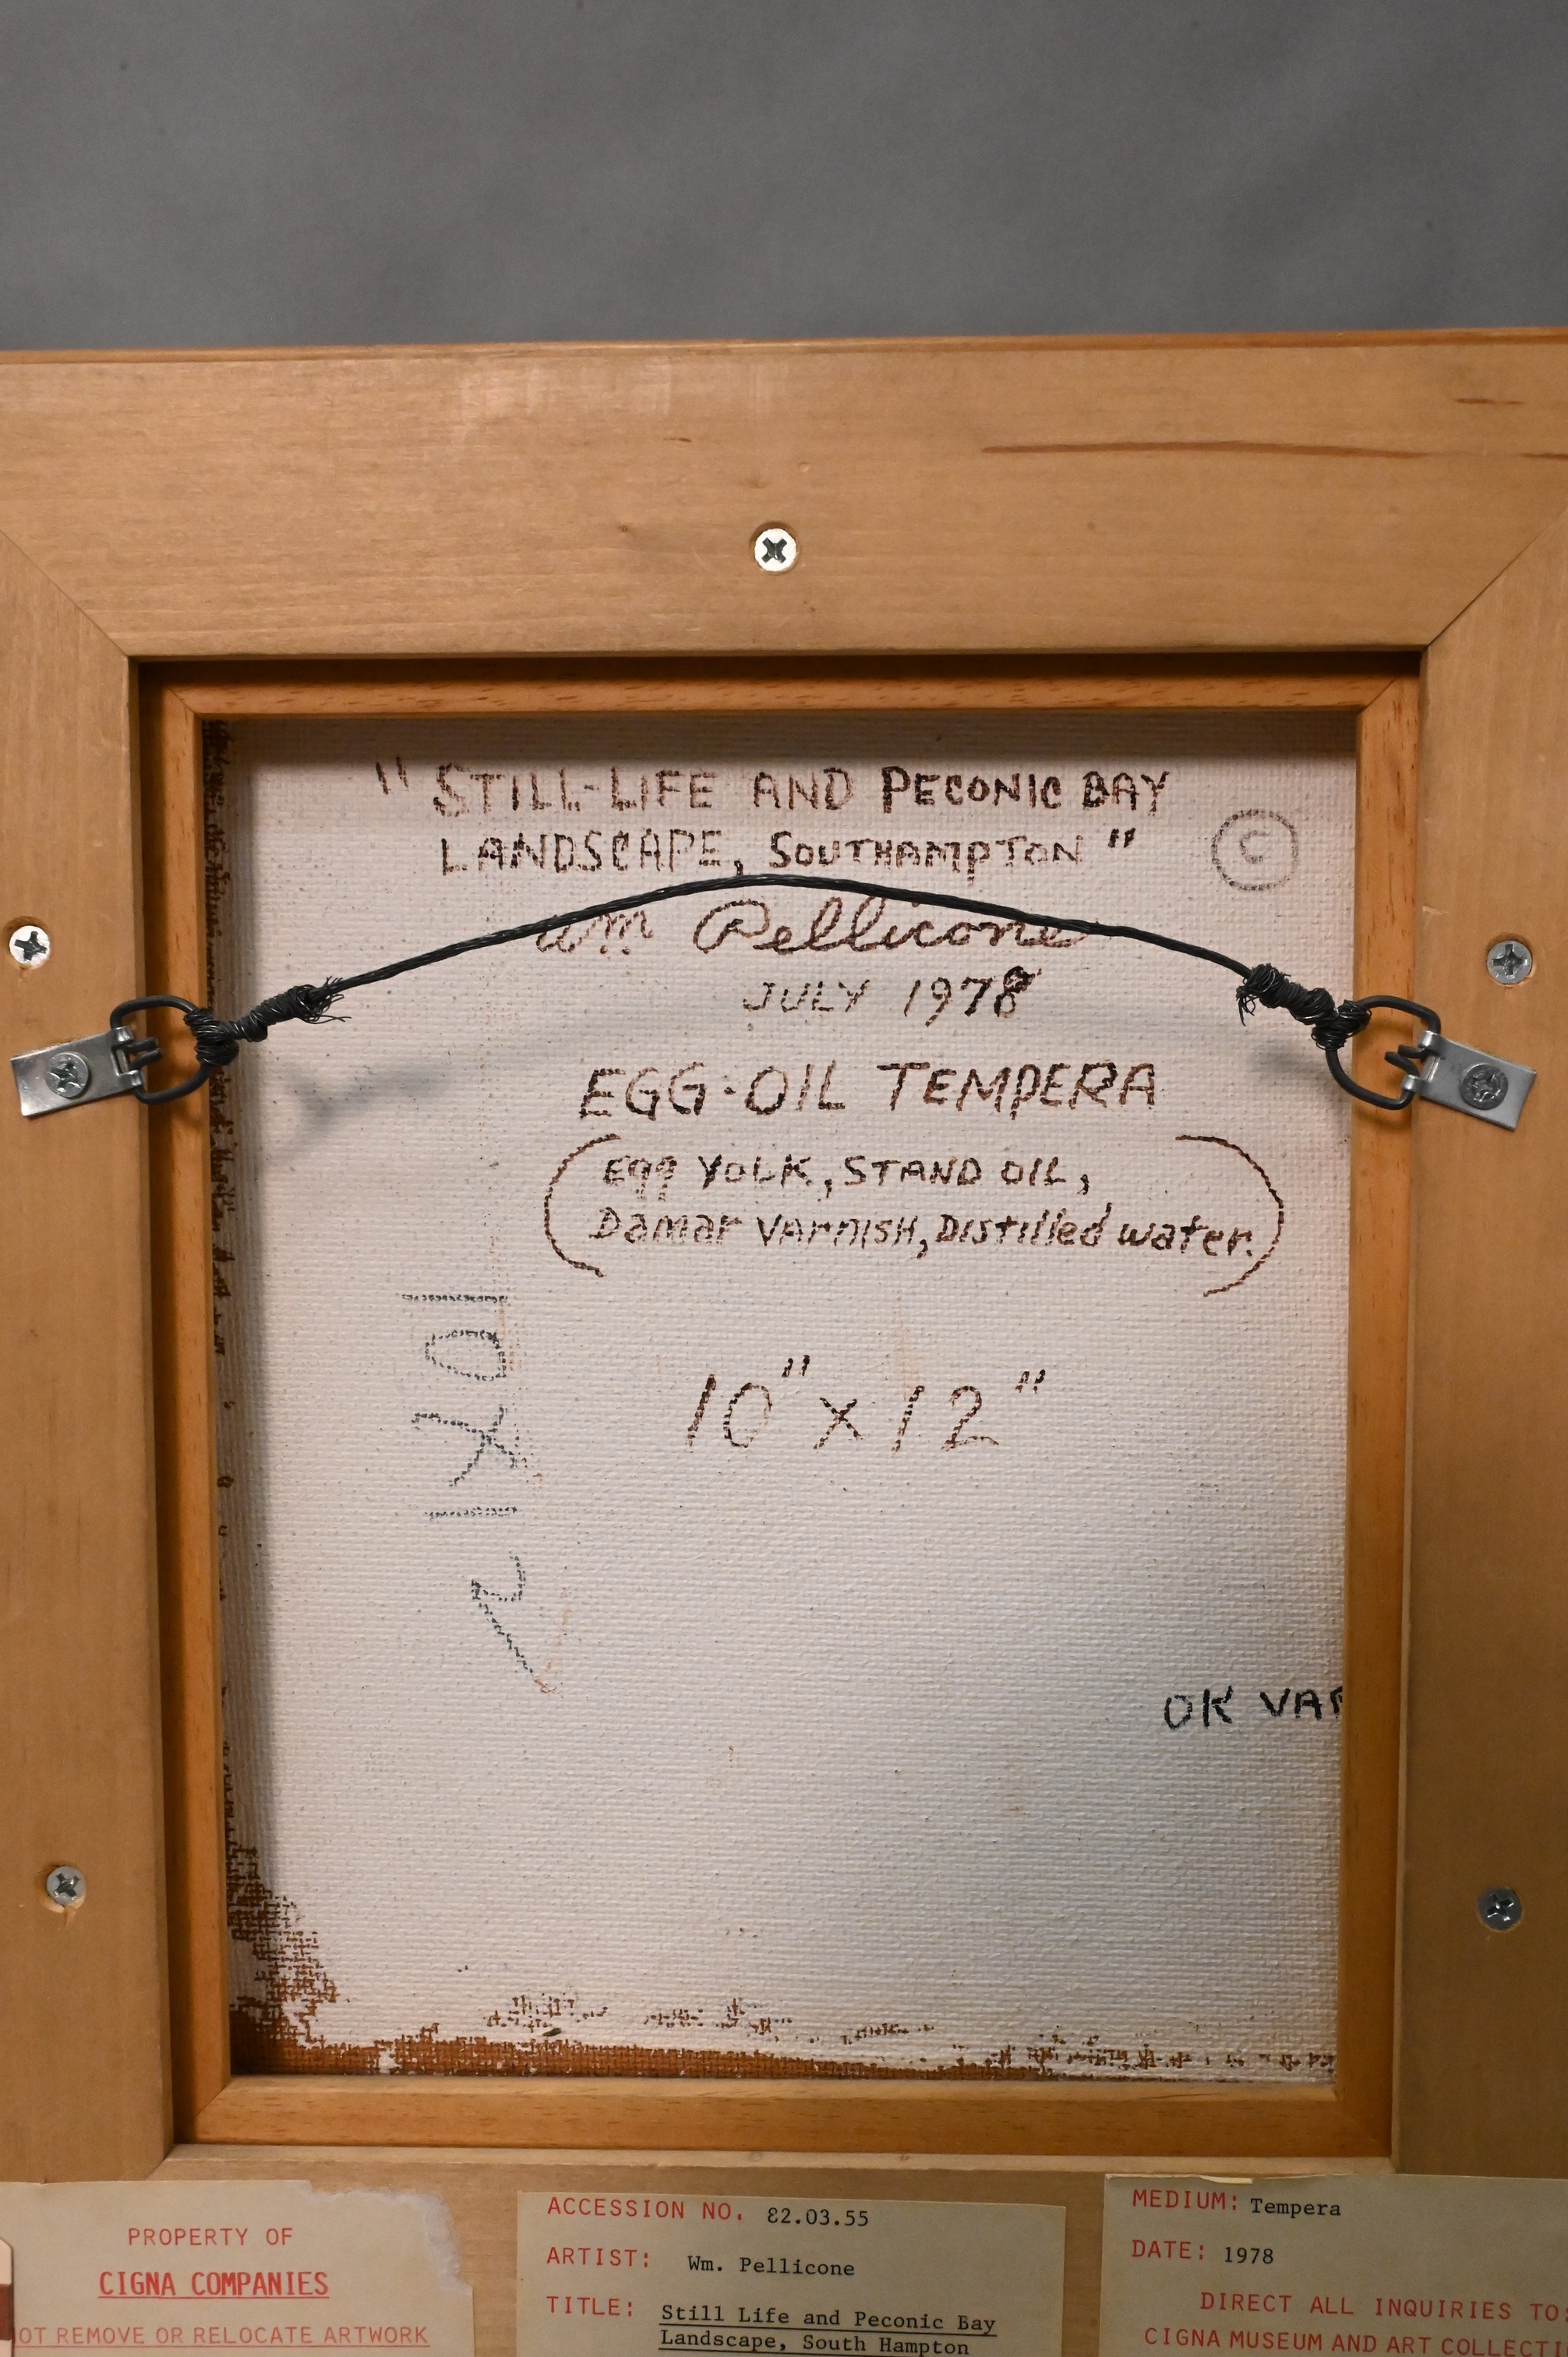 " STILL-LIFE AND PECONIC BAY
LANDSCAPE, SOUTHAMPTON "
©
Wm Pellicone
JULY 1978
EGG-OIL TEMPERA
(Egg YOLK, STAND OIL,
Damar VARNISH, Distilled water.)
10" x 12"
10 X 12
OK VAR
PROPERTY OF
CIGNA COMPANIES
OT REMOVE OR RELOCATE ARTWORK
ACCESSION NO. 82.03.55
ARTIST: Wm. Pellicone
TITLE: Still Life and Peconic Bay
Landscape, South Hampton
MEDIUM: Tempera
DATE: 1978
DIRECT ALL INQUIRIES TO:
CIGNA MUSEUM AND ART COLLECTI